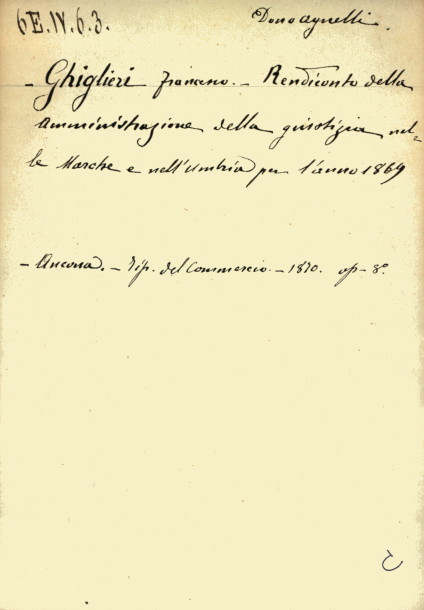 6E.IV.6.3. Dono Agnelli.
- Ghiglieri Francesco. - Rendiconto della
Amministrazione della giustizia nel=
le Marche e nell'Umbria per l'anno 1869
- Ancona. - Tip. del Commercio. - 1870. op- 8°.